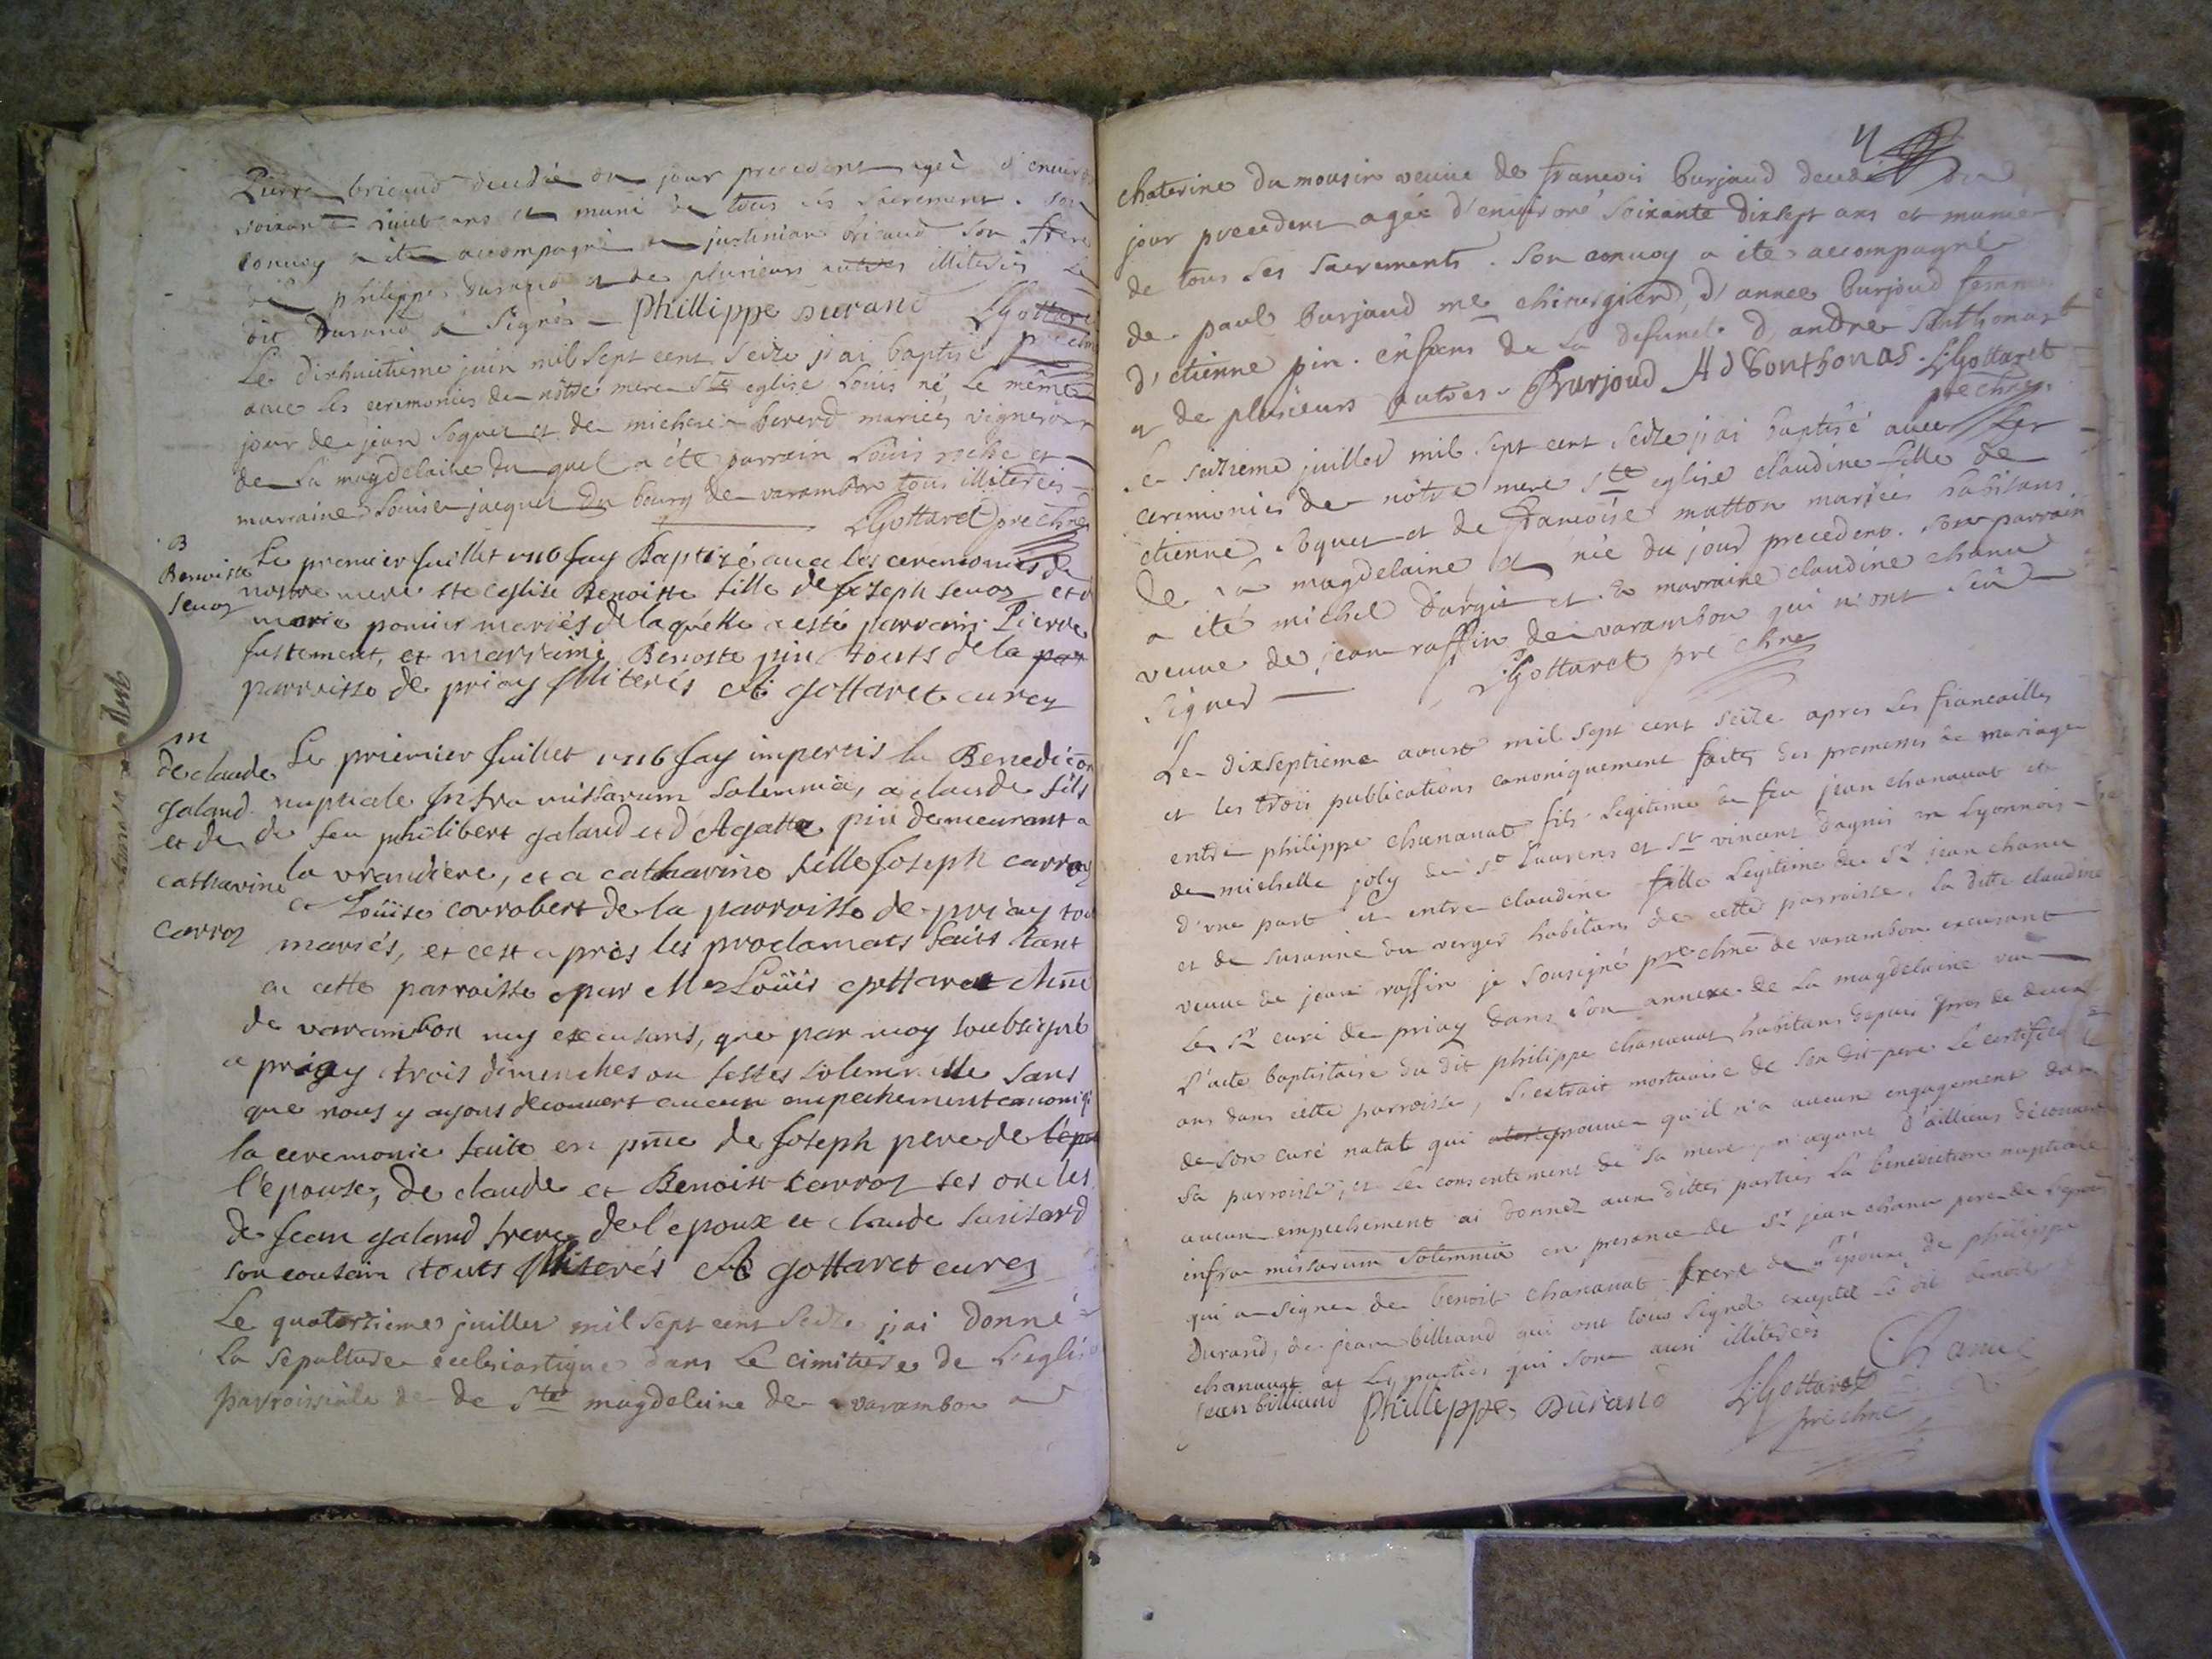 Pierre bricaud decedé du jour precedent agé d'environ
soixante huit ans et muni de tous ses sacrement. son
convoy a ite accompagné de justinian bricaud son frere
de philippe durand et de plusieurs autres illiterés le
dit Durand a signés - Phillippe Durand LGottaret
Le dixhuitieme juin mil sept cent seize j'ai baptisé pre chne
avec les ceremonies de nôtre mere Ste eglise Louis né le même
jour de jean soquet et de michele bererd mariés vigneron
de la magdelaine du quel a éte parrain Louis roche et
marraine Louise jacquet du bourg de varambon tous illiterés
LGottaret pre chne
B
Benoiste
Senoz
Le premier Juillet 1716 Jay Baptizé avec les ceremonies de
nostre mere ste eglise Benoitte fille de Joseph Senoz et d
marie ponier mariés de laquelle a esté parrain Pierre
fustement, et marraine Benoste pin touts de la par
parroisse de priay Illiterés A gottaret curez
m
de claude
galand
et de
catharine
carroz
Le priemier Juillet 1716 Jay impertis la Benediĉon
nuptiale Infra missarum solemnia, a claude fils
de feu philibert galand et d'Agatte pin demeurant a
la vrandiere, et a catharine fille Joseph carroz
et Loüise corrobert de la parroisse de priay tou
mariés, et cest apres les proclamats faits tant
en cette parroisse par Mr Loüis gottaret chne
de varambon my excusans, que par moy soubsigné
a priay trois dimenches ou festes solemnelle sans
que nous y ayons decouvert aucun empechement canoniq
la ceremonie faite en pnce de Joseph pere de l'epou
l'epouse, de claude et Benoist carroz ses oncles
de Jean galand frere de l'epoux et claude
son cousin touts Illiterés A gottaret curez
Le quatorzieme juillet mil sept cent seize j'ai donné
la sepulture ecclesiastique dans le cimitiere de l'eglise
parroissiale de de Ste magdelaine de varambon a
chaterine du mousin veuve de francois burjaud decedé du
jour precedent agée d'environé soixante dixsept ans et munie
de tous ses sacrements. son convoy a ite accompagné
de paul burjaud me chirurgien, d'anne burjoud femme
d'etienne pin. enfans de la defunct. d'andre
et de plusieurs autres. Burjoud A d Bonthonas. LGottaret
pre chne
Le seizieme juillet mil sept cent seize j'ai baptisé avec les
ceremonies de nôtre mere Ste eglise claudine fille de
etienne soquet et de francoise matton mariés habitans
de la magdelaine et née du jour precedent. son parrain
a été michel dargit et la marraine claudine chanu
veuve de jean raffin de varambon qui n'ont seü
signer LGottaret pre chne
Le dixseptieme aoust mil sept cent seize apres les fiancailles
et les trois publications canoniquement faites des promesses de mariage
entre philippe chananat fils legitime de feu jean chananat et
de michelle joly de st Laurens et st vincent dagnis en Lyonnois
d'vne part et entre claudine fille legitime de sr jean chanu
et de susanne du verger habitans de cette parroisse. la ditte claudine
veuve de jean raffin je sousigné pre chne de varambon excusant
le sr curé de priay dans son annexe de la magdelaine vu
l'acte baptistaire du dit philippe chananat habitans depuis pres de deux
ans dans cette parroisse, l'extrait mortuaire de son dit pere le certificat
de son curé natal qui prouve qu'il n'a aucun engagement dans
sa parroisse, et le consentement de sa mere, n'ayant d'ailleurs découvert
aucun empechement ai donnez aux dittes parties la benediction nuptiale
infra missarum solemnia en presance de sr jean chanu pere de
qui a signe de benoit chananat frere de l'epoux de philippe
Durand, de jean billiand qui ont tous signé excepté le dit benoit
chananat et les parties qui sont aussi illiterées Chanu
Jean billiand Phillippe Durand LGottaret
pre chne